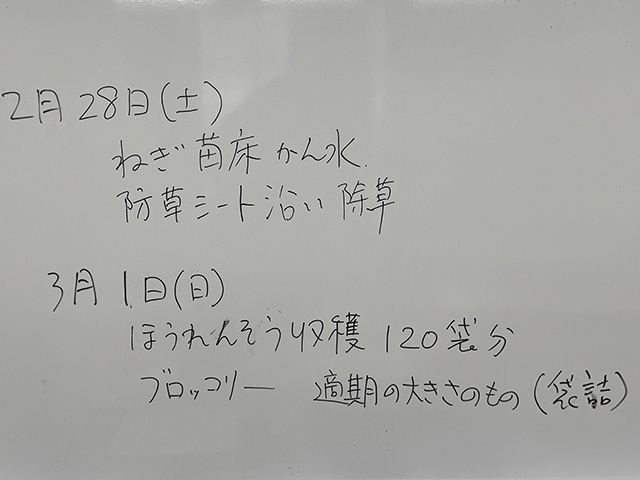 2月28日(土)
ねぎ 苗床 かん水.
防草シート沿い 除草
3月1日(日)
ほうれんそう収穫 120袋分
ブロッコリー 適期の大きさのもの(袋詰)